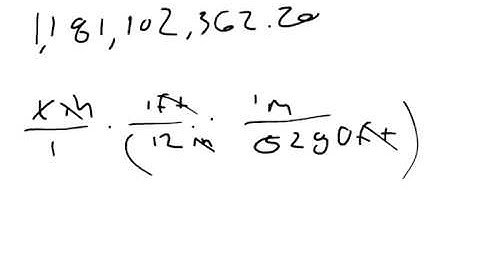 1,181,102,362.20
x in/1 · (1ft/12 in · 1m/5280ft)